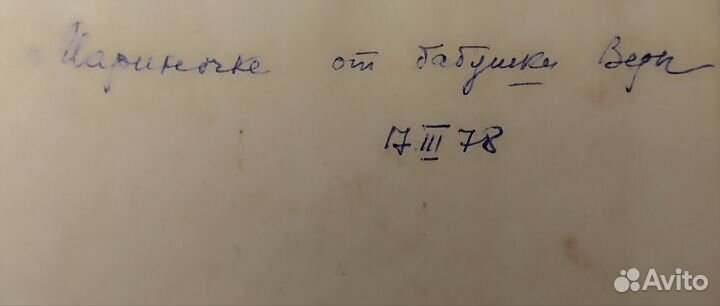 Мариночке от бабушки Веры
17 III 78
Avito